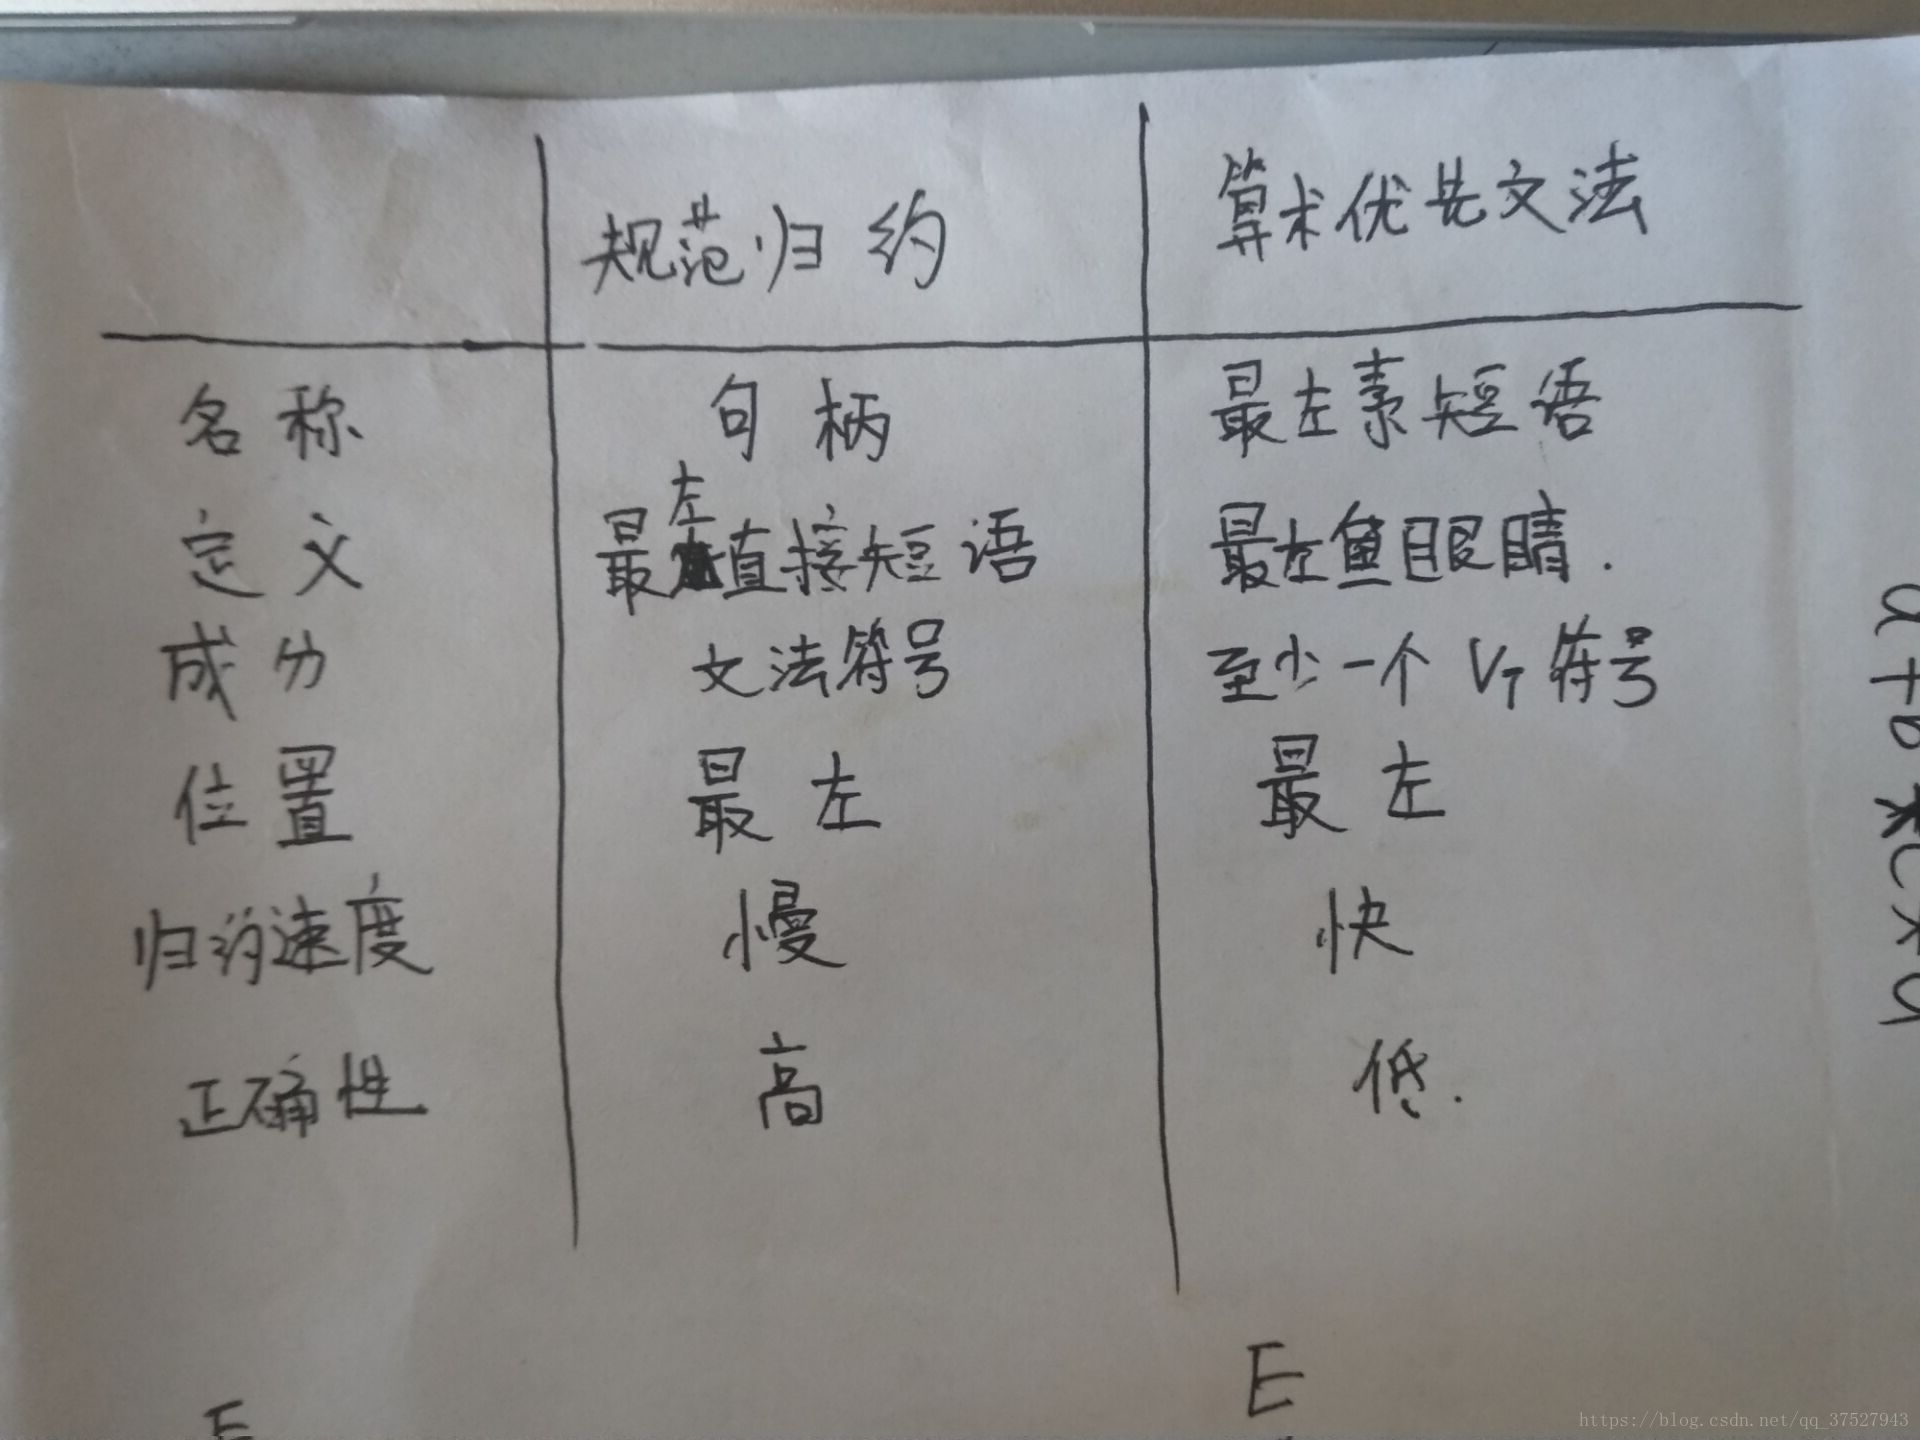 规范归约 算术优先文法
名称 句柄 最左素短语
定义 最左直接短语 最左鱼眼睛.
成分 文法符号 至少一个 VT 符号
位置 最左 最左
归约速度 慢 快
正确性 高 低.
E
E
https://blog.csdn.net/qq_37527943